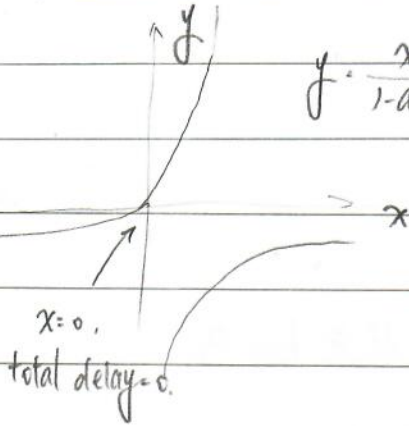 y
y = x
1-a
x
x=0.
total delay=0.